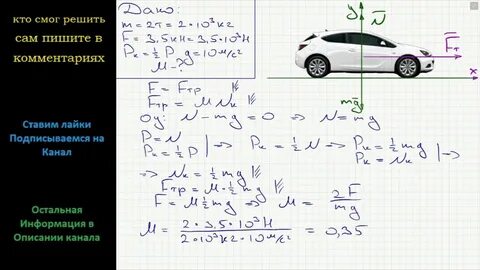 кто смог решить
сам пишите в
комментариях
Ставим лайки
Подписываемся на
Канал
Остальная
Информация в
Описании канала
Дано:
m = 2т = 2·10³кг
F = 3,5кН = 3,5·10³Н
Pк = ½ P g = 10 м/с²
μ - ?
y
N
Fт
x
mg
F = Fтр
Fтр = μ Nк
Oy: N - mg = 0 => N = mg
P = N
Pк = ½ P | => Pк = ½ N => Pк = ½ mg
Pк = Nк | =>
=> Nк = ½ mg
Fтр = μ · ½ mg
F = μ ½ mg => μ = 2F / mg
μ = 2 · 3,5 · 10³ Н / 2·10³ кг · 10 м/с² = 0,35